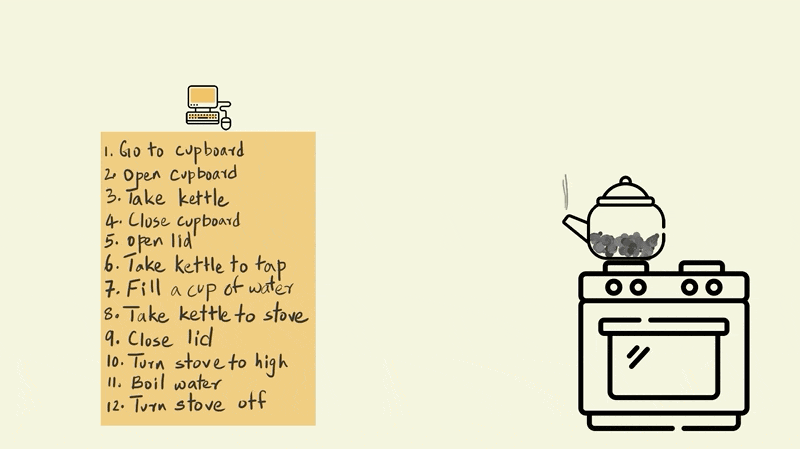 1. Go to cupboard
2. Open cupboard
3. Take kettle
4. Close cupboard
5. open lid
6. Take kettle to tap
7. Fill a cup of water
8. Take kettle to stove
9. Close lid
10. Turn stove to high
11. Boil water
12. Turn stove off